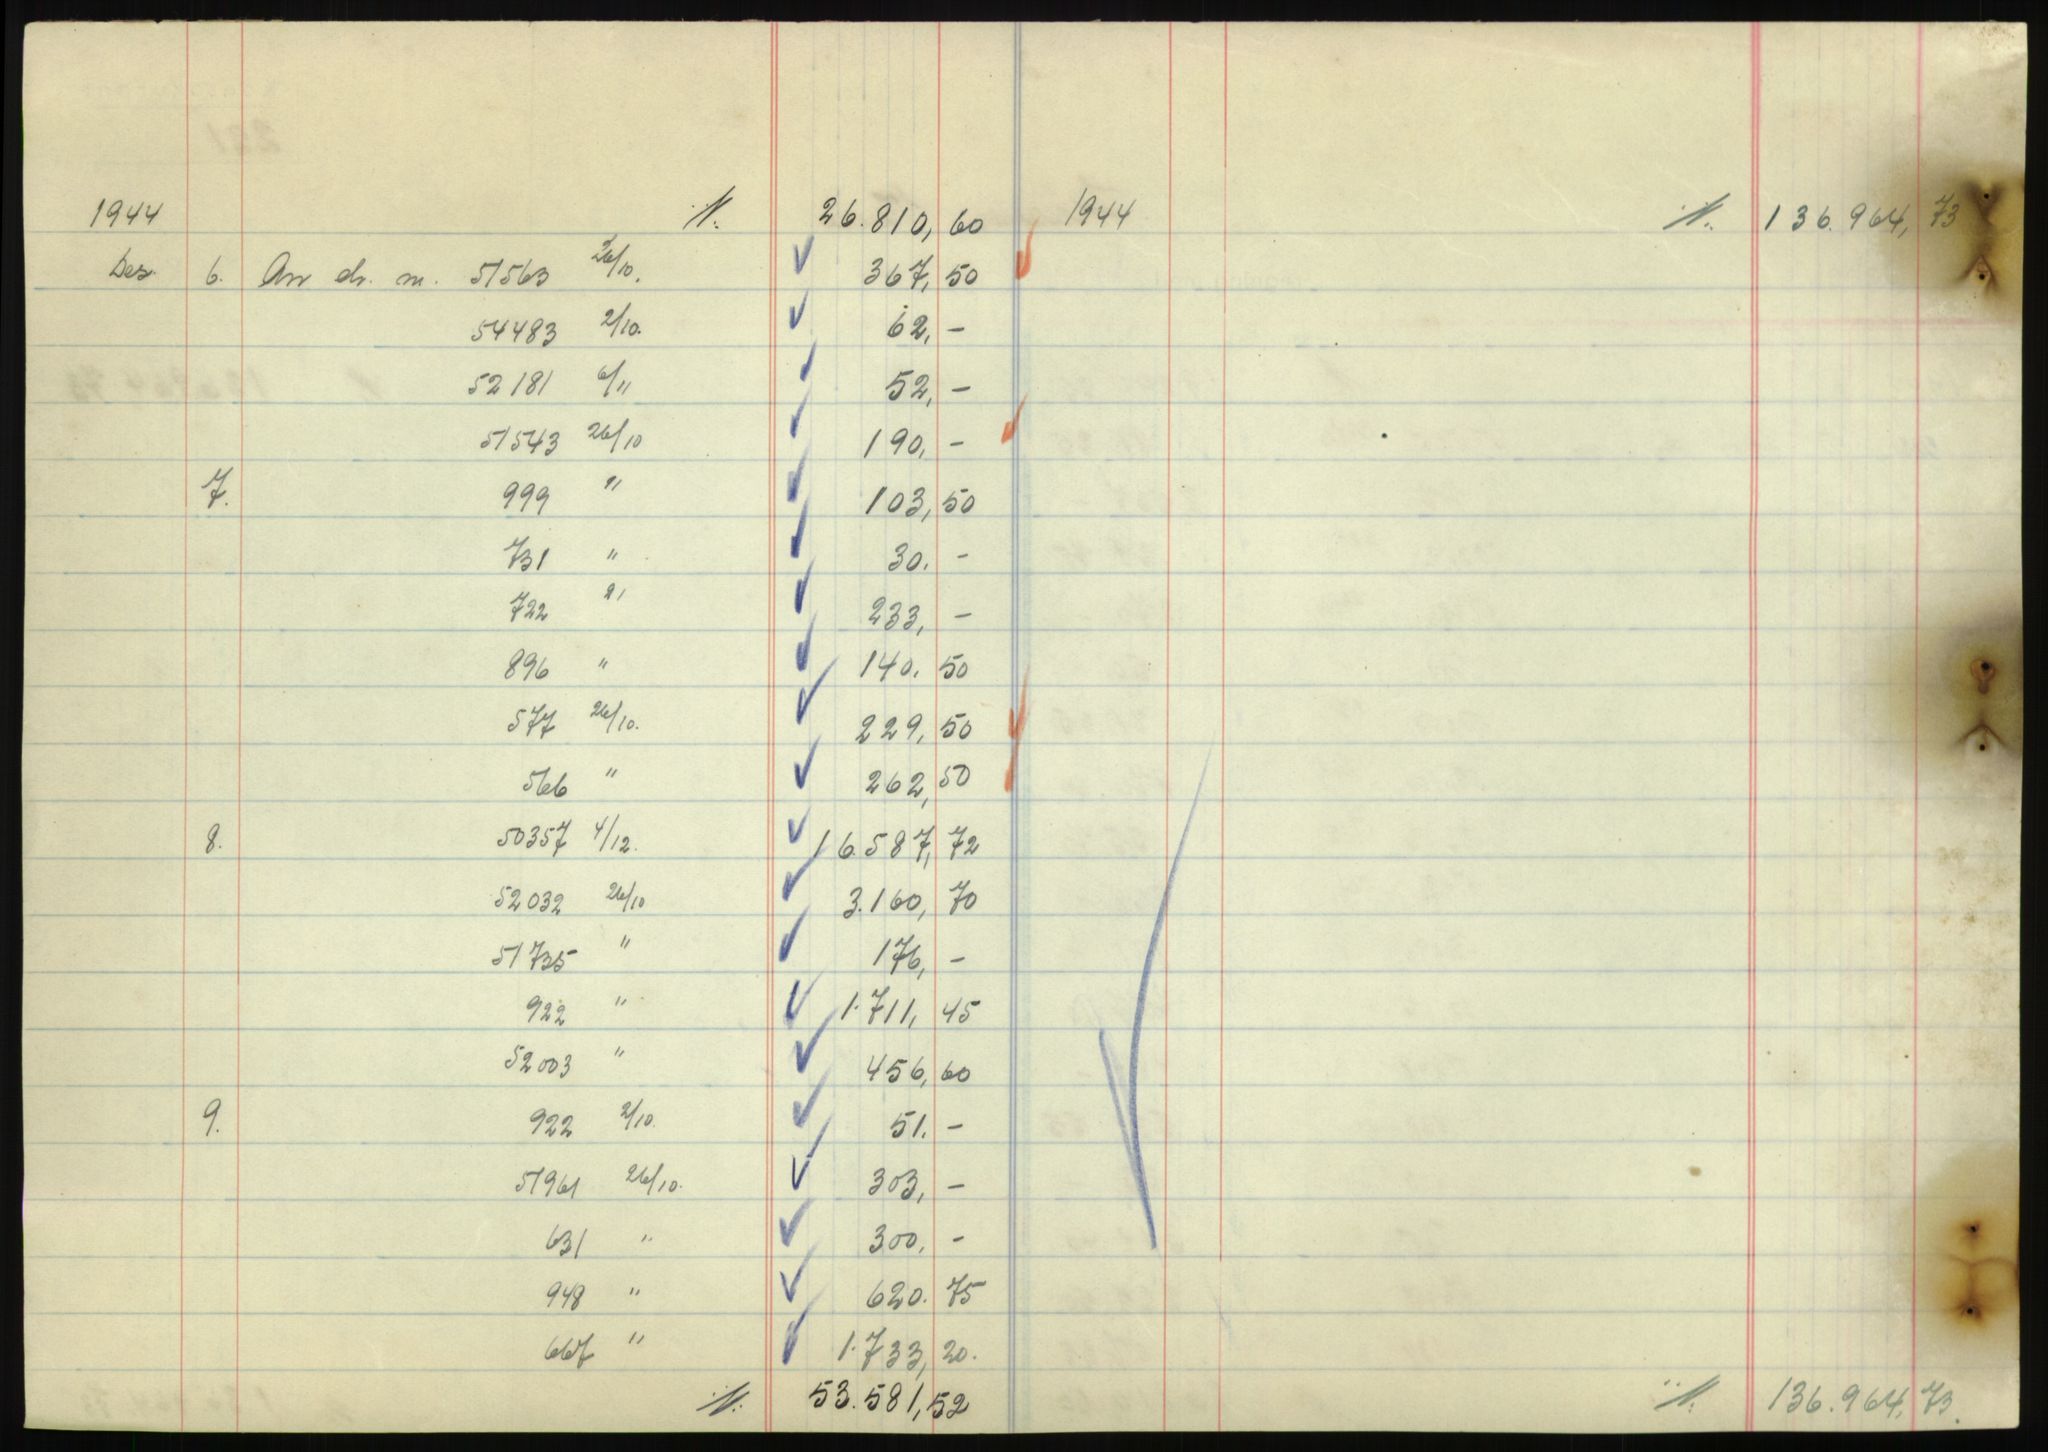 1944 ·/. 26.810,60
Des. 6. An ch. m. 51563 26/10. 367,50
54483 2/10. 62,-
52181 6/11 52,-
51543 26/10 190,-
7. 999 " 103,50
731 " 30.-
722 " 233,-
896 " 140.50
577 26/10. 229,50
566 " 262,50
8. 50357 4/12. 16.587,72
52032 26/10 3.160,70
51735 " 176,-
922 " 1.711,45
52003 " 456,60
9. 922 2/10. 51.-
51961 26/10. 303,-
631 " 300.-
948 " 620.75
667 " 1.733,20.
·/. 53.581,52
1944 ·/. 136.964,73
·/. 136.964,73.